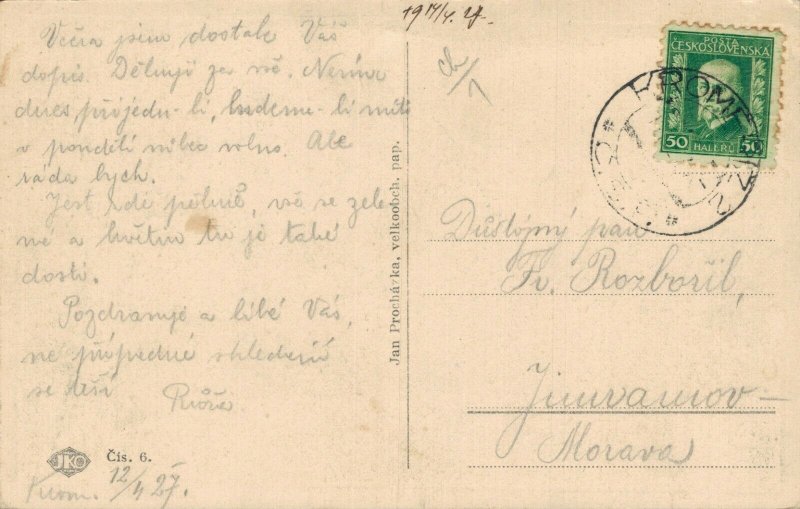 Včera jsem dostala Váš
dopis. Děkuji za vš. Nevím
dnes přijedu-li, budeme-li míti
v pondělí volno. Ale
ráda bych.
Jest zde pěkně, vš se zele-
ná a květin tu je také
dosti.
Pozdravuje a líbá Vás,
na případné shledání
se těší
Růža
Čís. 6.
JKO
Krom. 12/4 27.
Jan Procházka, velkoobch. pap.
19 17/4. 27.
POSTA
ČESKOSLOVENSKÁ
50 HALÉŘŮ 50
KROMĚŘÍŽ
Důstojný pan
Fr. Rozbořil,
Jimramov-
Morava